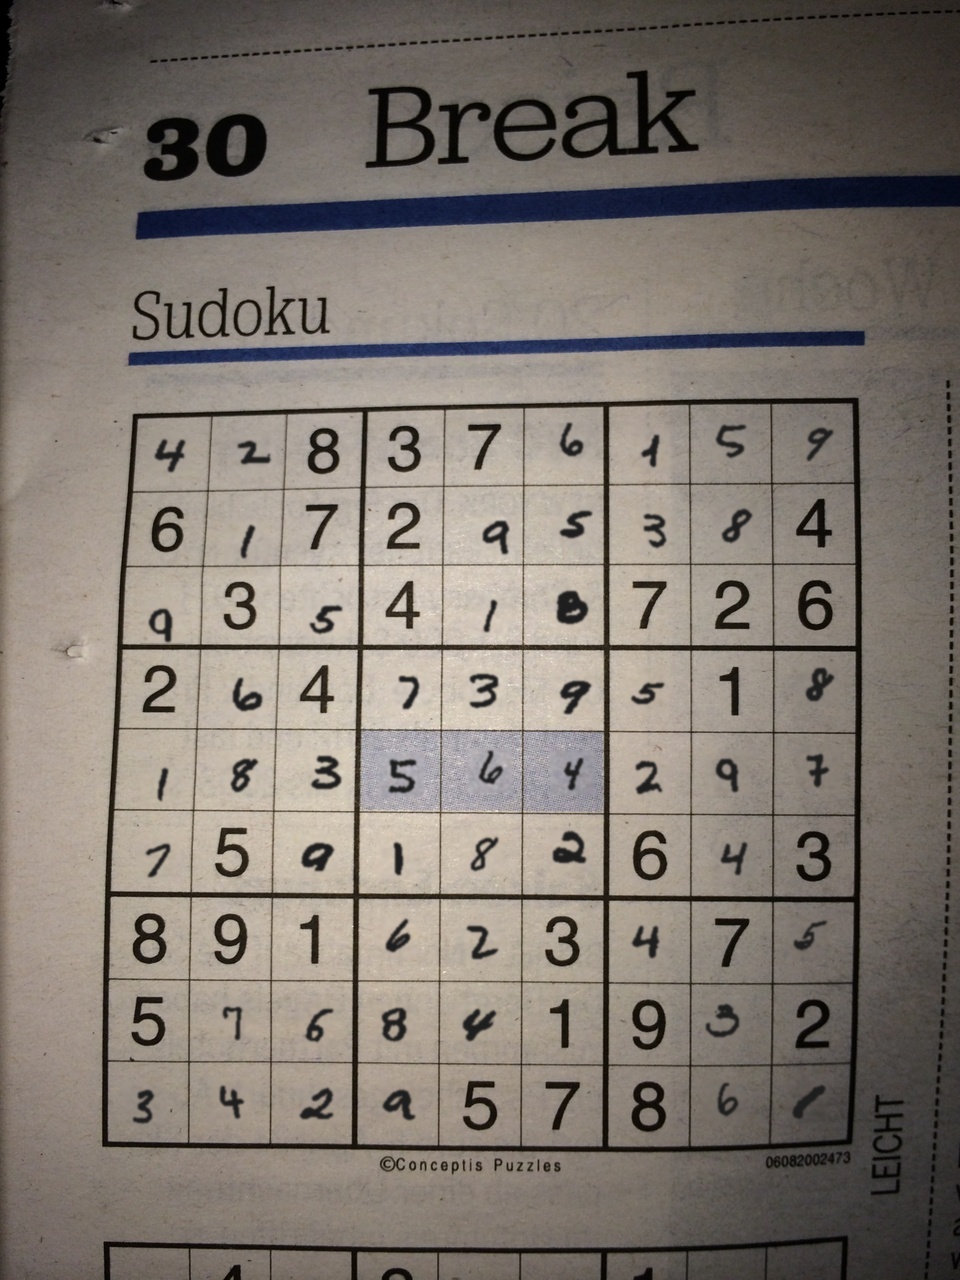 30 Break
Sudoku
4 2 8 3 7 6 1 5 9
6 1 7 2 9 5 3 8 4
9 3 5 4 1 8 7 2 6
2 6 4 7 3 9 5 1 8
1 8 3 5 6 4 2 9 7
7 5 9 1 8 2 6 4 3
8 9 1 6 2 3 4 7 5
5 7 6 8 4 1 9 3 2
3 4 2 9 5 7 8 6 1
©Conceptis Puzzles
06082002473
LEICHT